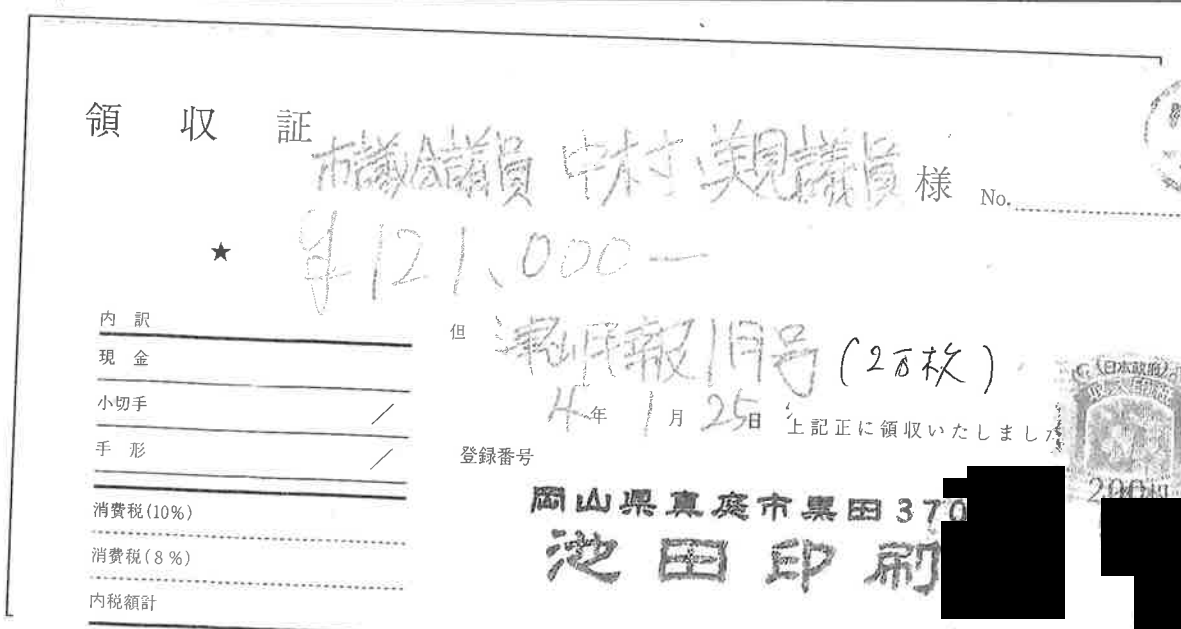 領収証
市議会議員 中村 美見議員 様 No.
★ ¥121,000−
内訳
現金
小切手
手形
消費税(10%)
消費税(8%)
内税額計
但 津山民報1月号 (2万枚)
4年1月25日 上記正に領収いたしまし
登録番号
岡山県真庭市黒田370
池田印刷
(日本政府)
200円